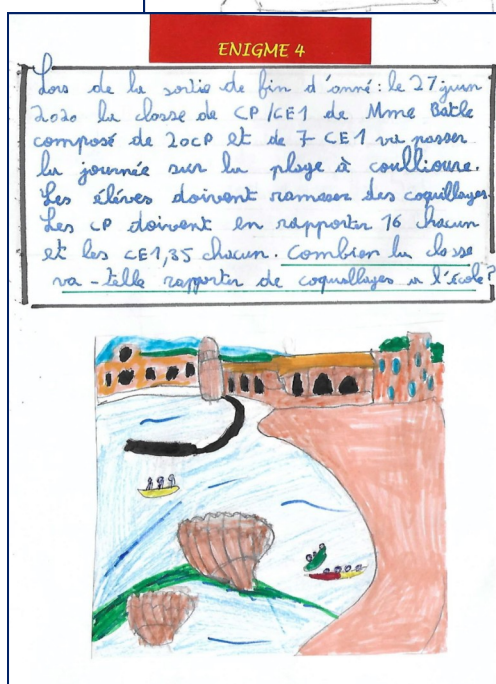 ENIGME 4
Lors de la sortie de fin d'anné : le 27 juin
2020 la classe de CP/CE1 de Mme Batle
composé de 20CP et de 7 CE1 va passer
la journée sur la plage à coullioure.
Les élèves doivent ramasser des coquillages.
Les CP doivent en rapporter 16 chacun
et les CE1, 35 chacun. Combien la classe
va-telle rapporter de coquillages à l'école ?